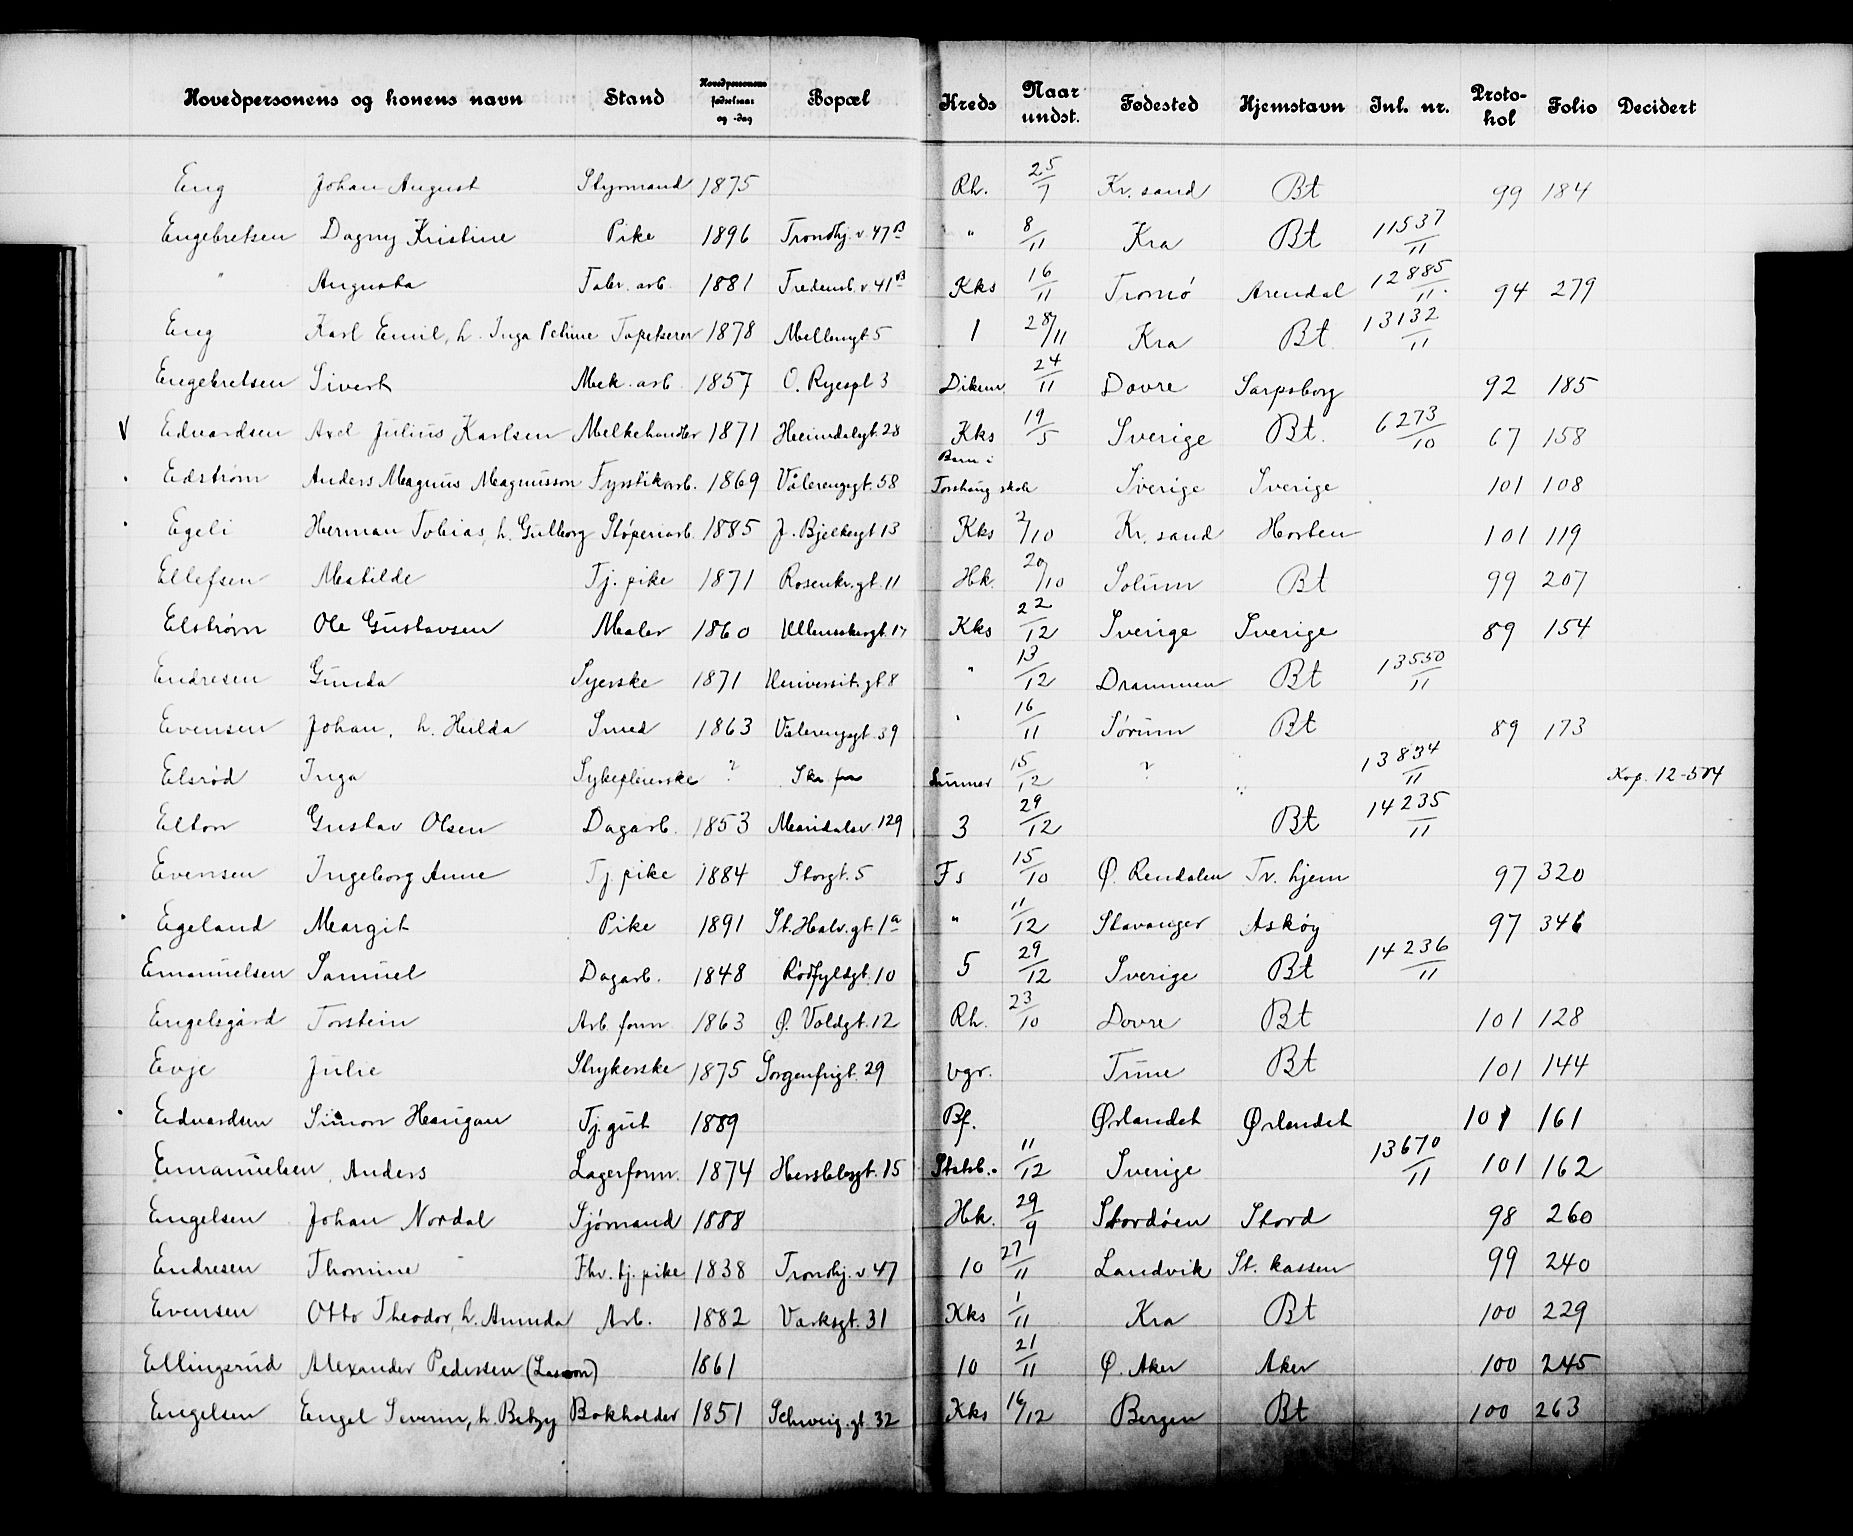 Hovedpersonens og konens navn Stand Hovedpersonens fødselsaar og -dag Bopæl Kreds Naar undst. Fødested Hjemstavn Inl. nr. Proto-kol Folio Decidert
Eng Johan August Styrmand 1875 Rh. 25/7 Kr. sand Bt 99 184
Engebretsen Dagny Kristine Pike 1896 Trondhj. v. 47B " 8/11 Kra Bt 11537/11
" Augusta Fabr. arb. 1881 Fredensb. v. 41B Kks 16/11 Tromø Arendal 12885/11. 94 279
Eng Karl Emil, h. Inga Petrine Tapetserer 1878 Møllergt 5 1 28/11 Kra Bt 13132/11
Engebretsen Sivert Mek. arb. 1857 O. Ryespl 3 Dikem. 24/11 Dovre Sarpsborg 92 185
V Edvardsen Axel Julius Karlsen Melkehandler 1871 Heimdalsgt. 28 Kks 19/5 Sverige Bt. 6273/10 67 158
. Edstrøm Anders Magnus Magnusson Fyrstikarb. 1869 Vålerengsgt. 58 Barn i Torshaug skole Sverige Sverige 101 108
. Egeli Herman Tobias, h. Gulborg Støperiarb. 1885 J. Bjelkesgt 13 Kks 2/10 Kr. sand Horten 101 119
Ellefsen Matilde Tj. pike 1871 Rosenkr. gt. 11 Hk. 20/10 Solum Bt 99 207
Elstrøm Ole Gustavsen Maler 1860 Ullensakergt. 17 Kks 22/12 Sverige Sverige 89 154
Endresen Gunda Syerske 1871 Universit. gt 8 " 13/12 Drammen Bt 13550/11
Evensen Johan, h. Hulda Smed 1863 Vålerengsgt. 39 " 16/11 Sørum Bt 89 173
Elsrød Inga Sykepleierske ? Ska 15/12 ? " 13834/11 Kop. 12-504
Elton Gustav Olsen Dagarb. 1853 Maridalsv. 129 3 29/12 Bt 14235/11
Evensen Ingeborg Anne Tj. pike 1884 Storgt. 5 Fs 15/10 Ø. Rendalen Tv. hjem 97 320
. Egeland Margit Pike 1891 St. Halv. gt. 1a " 11/12 Stavanger Askøy 97 346
Emanuelsen Samuel Dagarb. 1848 Rødfyldgt. 10 5 29/12 Sverige Bt 14236/11
Engelsgård Torstein Arb. form 1863 Ø. Voldgt. 12 Rh. 23/10 Dovre Bt 101 128
Evje Julie Strykerske 1875 Sorgenfrigt. 29 vgr. Tune Bt 101 144
. Edvardsen Simon Haugan Tj. gut 1889 Bf. Ørlandet Ørlandet 101 161
Emanuelsen, Anders Lagerform. 1874 Herslebsgt. 15 Statsb. 11/12 Sverige 13670/11 101 162
Engelsen Johan Nordal Sjømand 1888 Hk. 29/9 Stordøen Stord 98 260
Endresen Thomine Fhv. tj. pike 1838 Trondhj. v. 47 10 27/11 Landvik St. kassen 99 240
Evensen Otto Theodor, h. Amnda Arb. 1882 Verksgt. 31 Kks 1/11 Kra Bt 100 229
Ellingsrud Alexander Pedersen 1861 10 21/11 Ø. Aker Aker 100 245
Engelsen Engel Severin, h. Betzy Bokholder 1851 Schweig. gt. 32 Kks 16/12 Bergen Bt 100 263